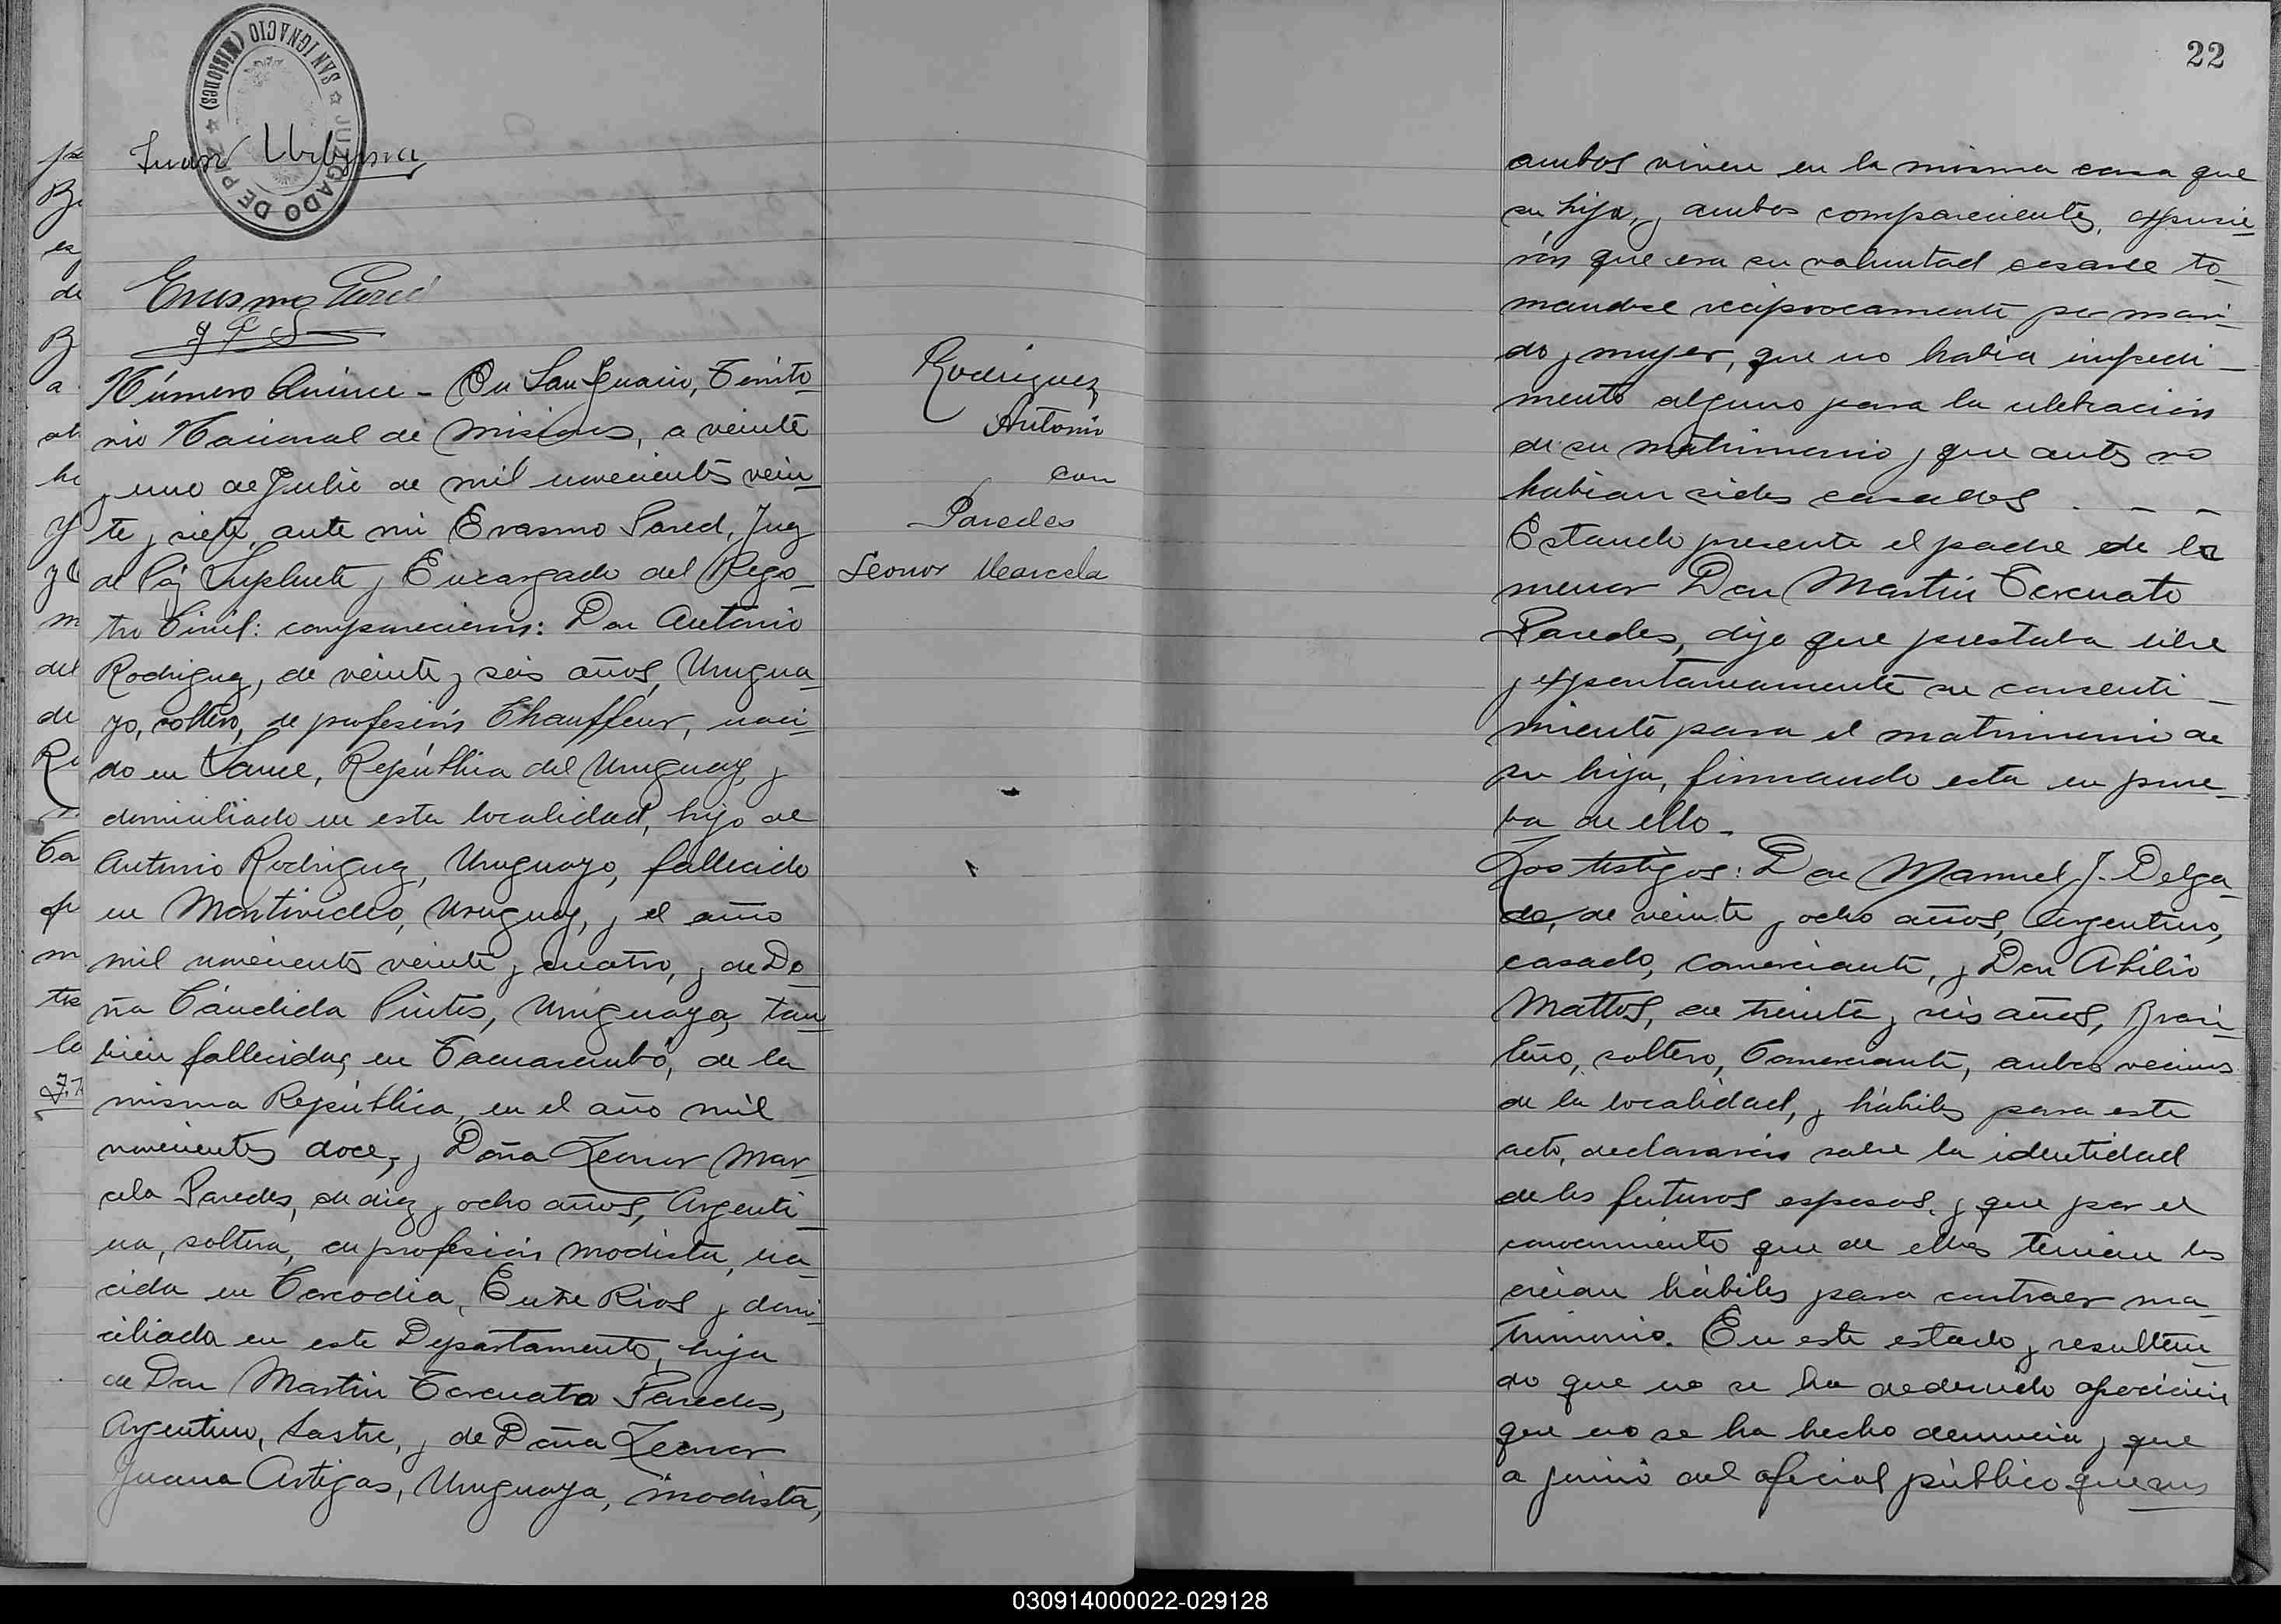 22
SAN IGNACIO (Misiones)
JUZGADO DE PAZ
Juan Urbyna
Erasmo Pared
J P S
Número Quince - En San Ignacio, Territo-
rio Nacional de Misiones, a veinte
y uno de Julio de mil novecientos vein-
te y siete, ante mi Erasmo Pared, Juez
de Paz Suplente y Encargado del Regis-
tro Civil: comparecieron: Don Antonio
Rodriguez, de veinte y seis años, Urugua-
yo, soltero, de profesión Chauffeur, naci-
do en Sauce, República del Uruguay y
domiciliado en esta localidad, hijo de
Antonio Rodriguez, Uruguayo, fallecido
en Montivideo, Uruguay, y el año
mil novecientos veinte y cuatro, y de Do-
ña Cándida Pintos, Uruguaya, tam-
bien fallecida, en Tacuarembó, de la
misma República, en el año mil
novecientos doce, y Doña Leonor Mar-
cela Paredes, de diez y ocho años, Argenti-
na, soltera, de profesión modista, na-
cida en Concodia, Entre Rios y domi-
ciliada en este Departamento, hija
de Don Martin Torcuato Paredes,
Argentino, Sastre, y de Doña Leonor
Juana Artigas, Uruguaya, modista,
Rodriguez
Antonio
con
Paredes
Leonor Marcela
ambos viven en la misma casa que
su hija, y ambos comparecientes, expusie-
rón que era su voluntad casarse to-
mandose reciprocamente por mari-
do y mujer, que no habia impedi-
mento alguno para la celebración
de su matrimonio y que antes no
habian sidos casados . - -
Estando presente el padre de la
menor Don Martin Torcuato
Paredes, dijo que prestaba libre
y expontaneamente su consenti-
miento para el matrimonio de
su hija, firmando esta en prue-
ba de ello -
Los testigos: Don Manuel J. Delga-
do, de veinte y ocho años, Argentino,
casado, comerciante, y Don Abilio
Mattos, de treinta y seis años, Brasi-
leño, soltero, Comerciante, ambos vecinos
de la localidad, y hábiles para este
acto, declararón sobre la identidad
de los futuros esposos, y que por el
conocimiento que de ellos tenian los
creian hábiles para contraer ma-
trimonio. En este estado y resultan-
do que no se ha deducido oposición
que no se ha hecho denuncia y que
a juicio del oficial público que sus
030914000022-029128